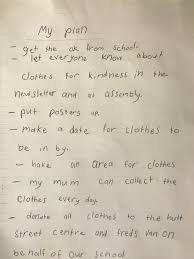 My plan
- get the ok from school.
- let everyone know about
clothes for kindness in the
newsletter and at assembly.
- put posters up
- make a date for clothes to
be in by.
- have an area for clothes
- my mum can collect the
clothes every day.
- donate all clothes to the hutt
street centre and freds van on
behalf of our school